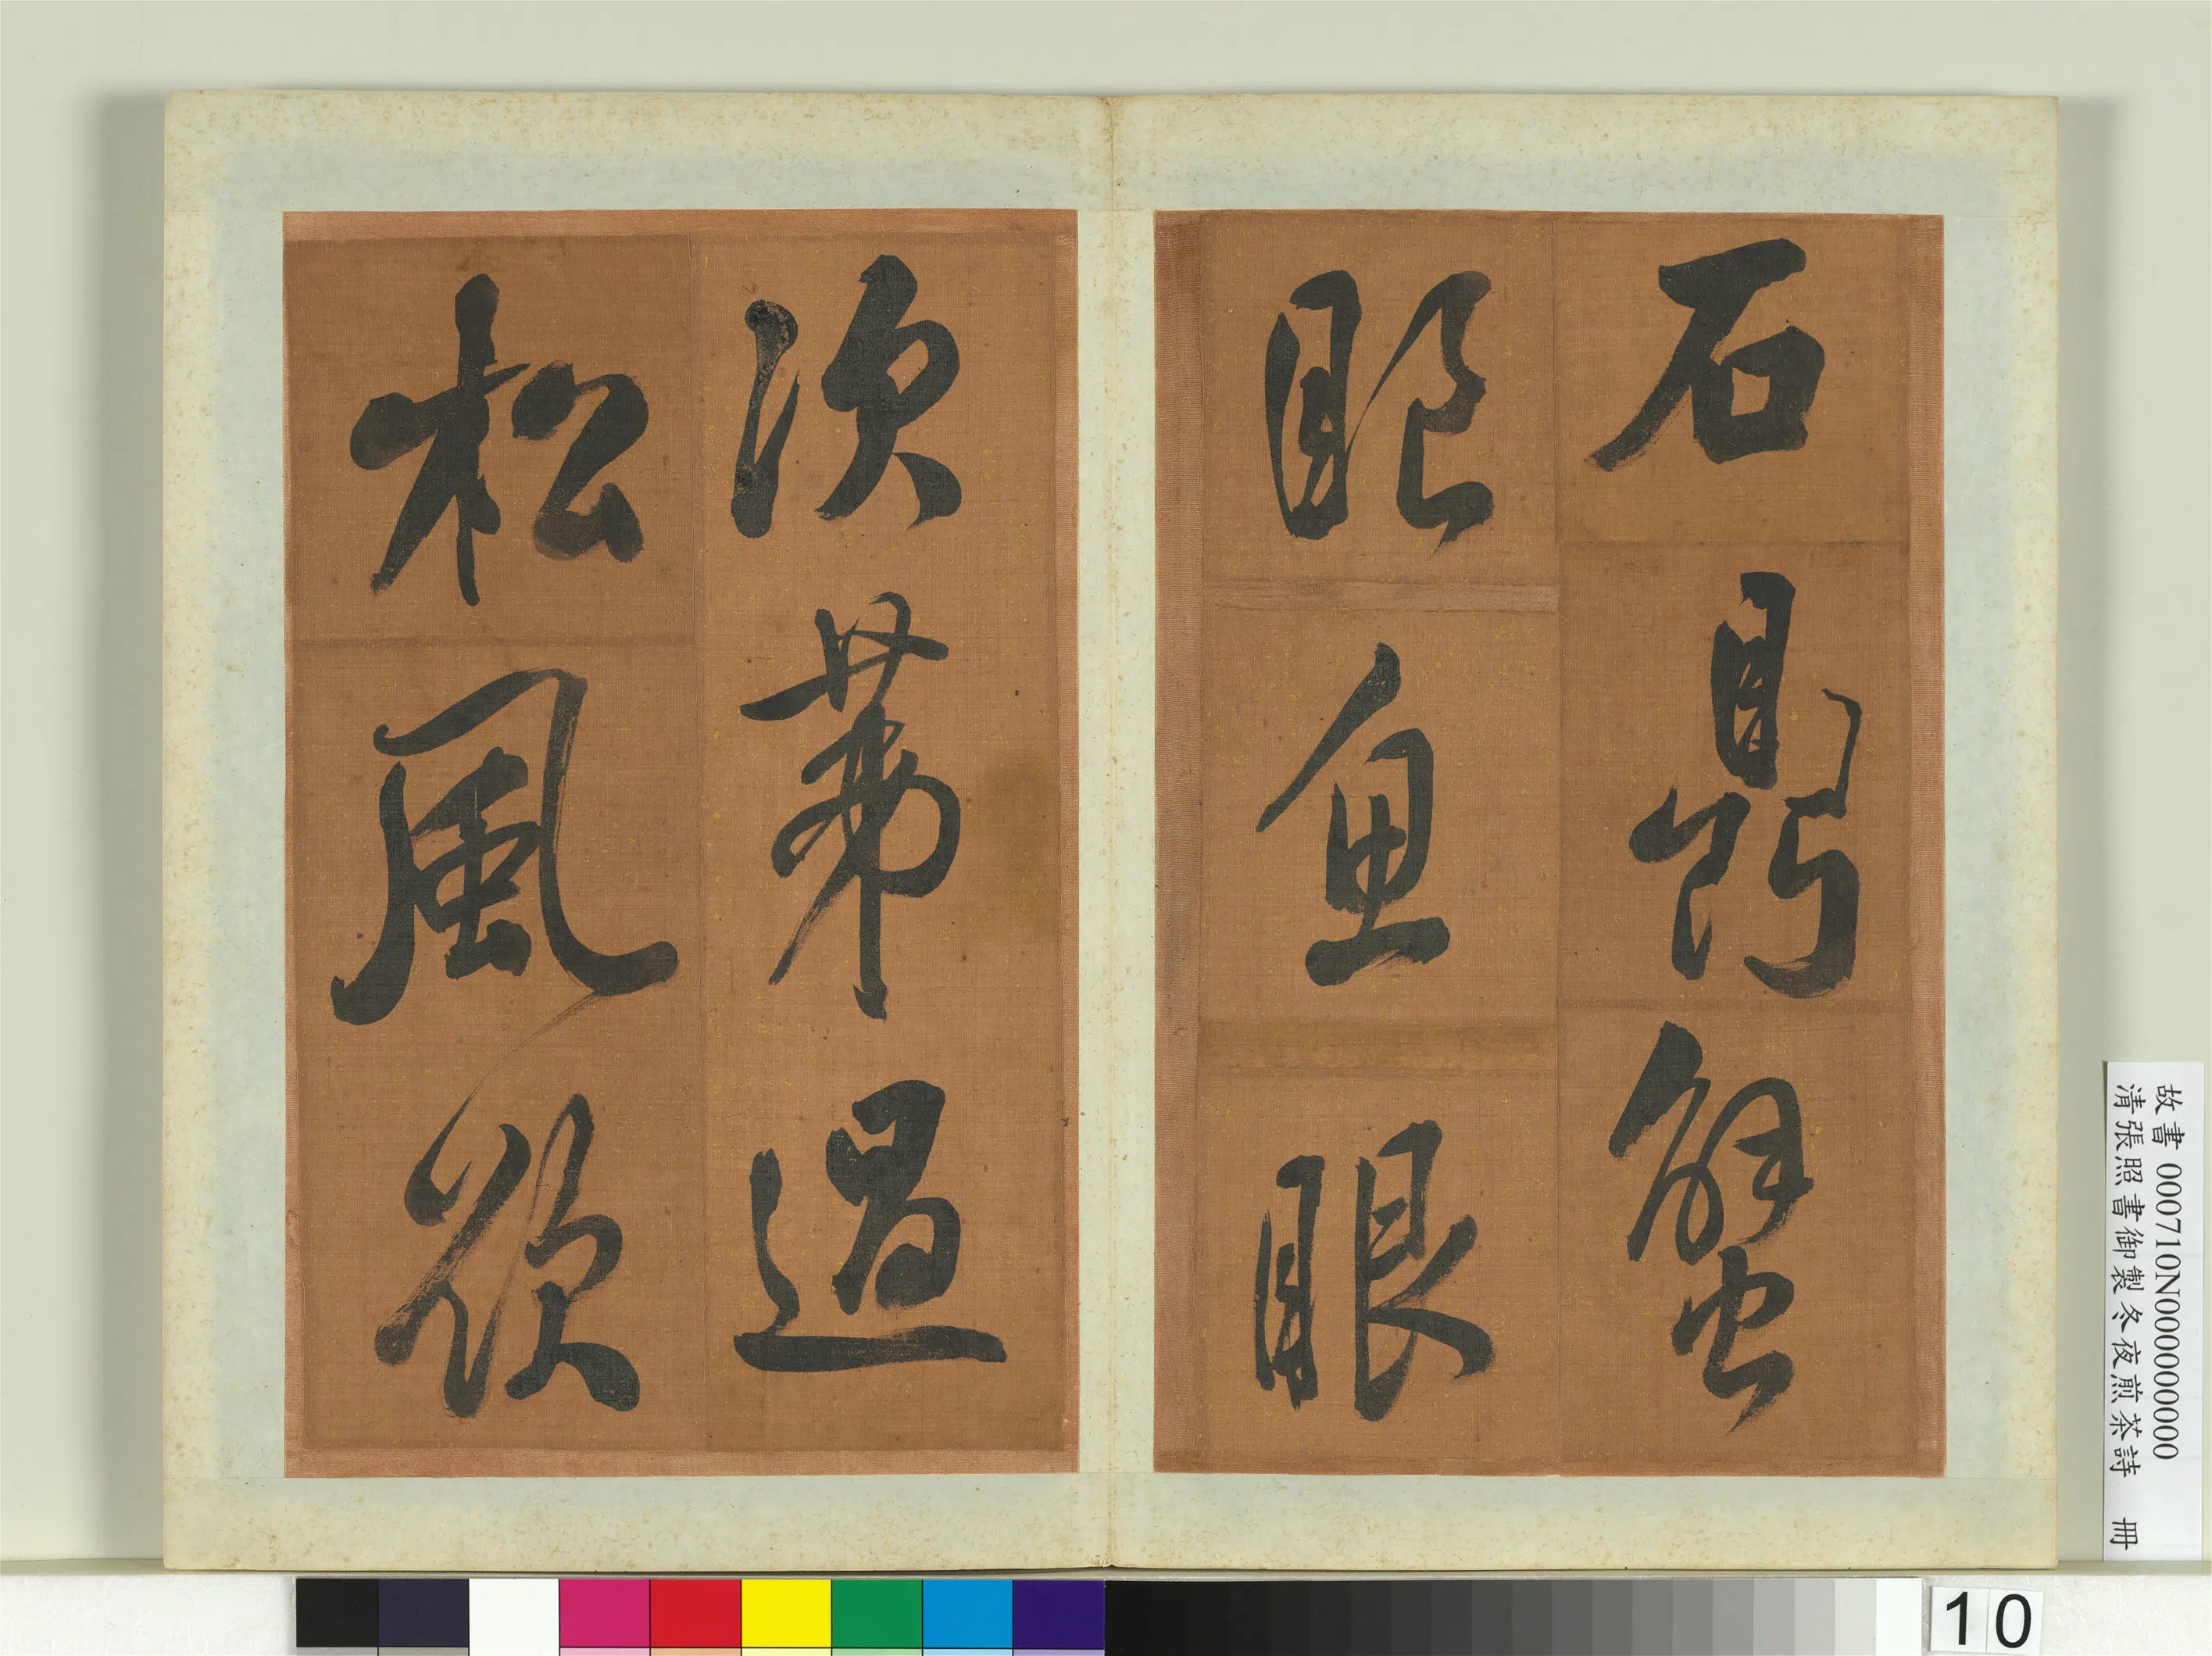 石鼎蟹
眼魚眼
次第過
松風欲
故書 000710N000000000
清張照書御製冬夜煎茶詩 冊
10